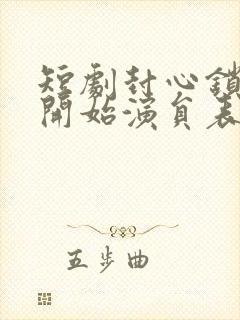 短劇封心鎖
開始演員表
五步曲